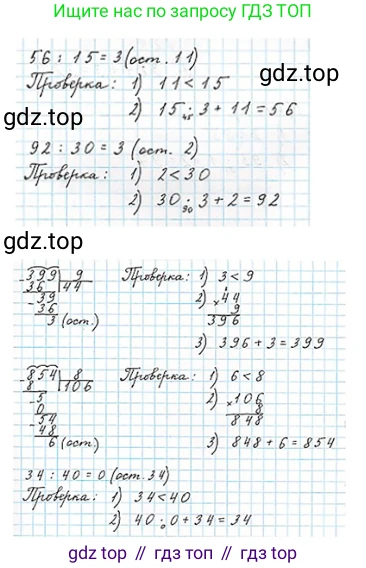 Ищите нас по запросу ГДЗ ТОП
56 : 15 = 3 (ост. 11)
Проверка: 1) 11 < 15
2) 15 · 3 + 11 = 56
45
gdz.top
92 : 30 = 3 (ост. 2)
Проверка: 1) 2 < 30
2) 30 · 3 + 2 = 92
90
gdz.top
gdz.top
- 399 | 9 Проверка: 1) 3 < 9
36 | 44 2) × 44
- 39 9
36 396
3 (ост.) 3) 396 + 3 = 399
- 854 | 8 Проверка: 1) 6 < 8
8 | 106 2) × 106
- 5 8
0 848
- 54
48
6 (ост.) 3) 848 + 6 = 854
34 : 40 = 0 (ост. 34)
Проверка: 1) 34 < 40
2) 40 · 0 + 34 = 34
0
gdz.top // гдз топ // gdz.top